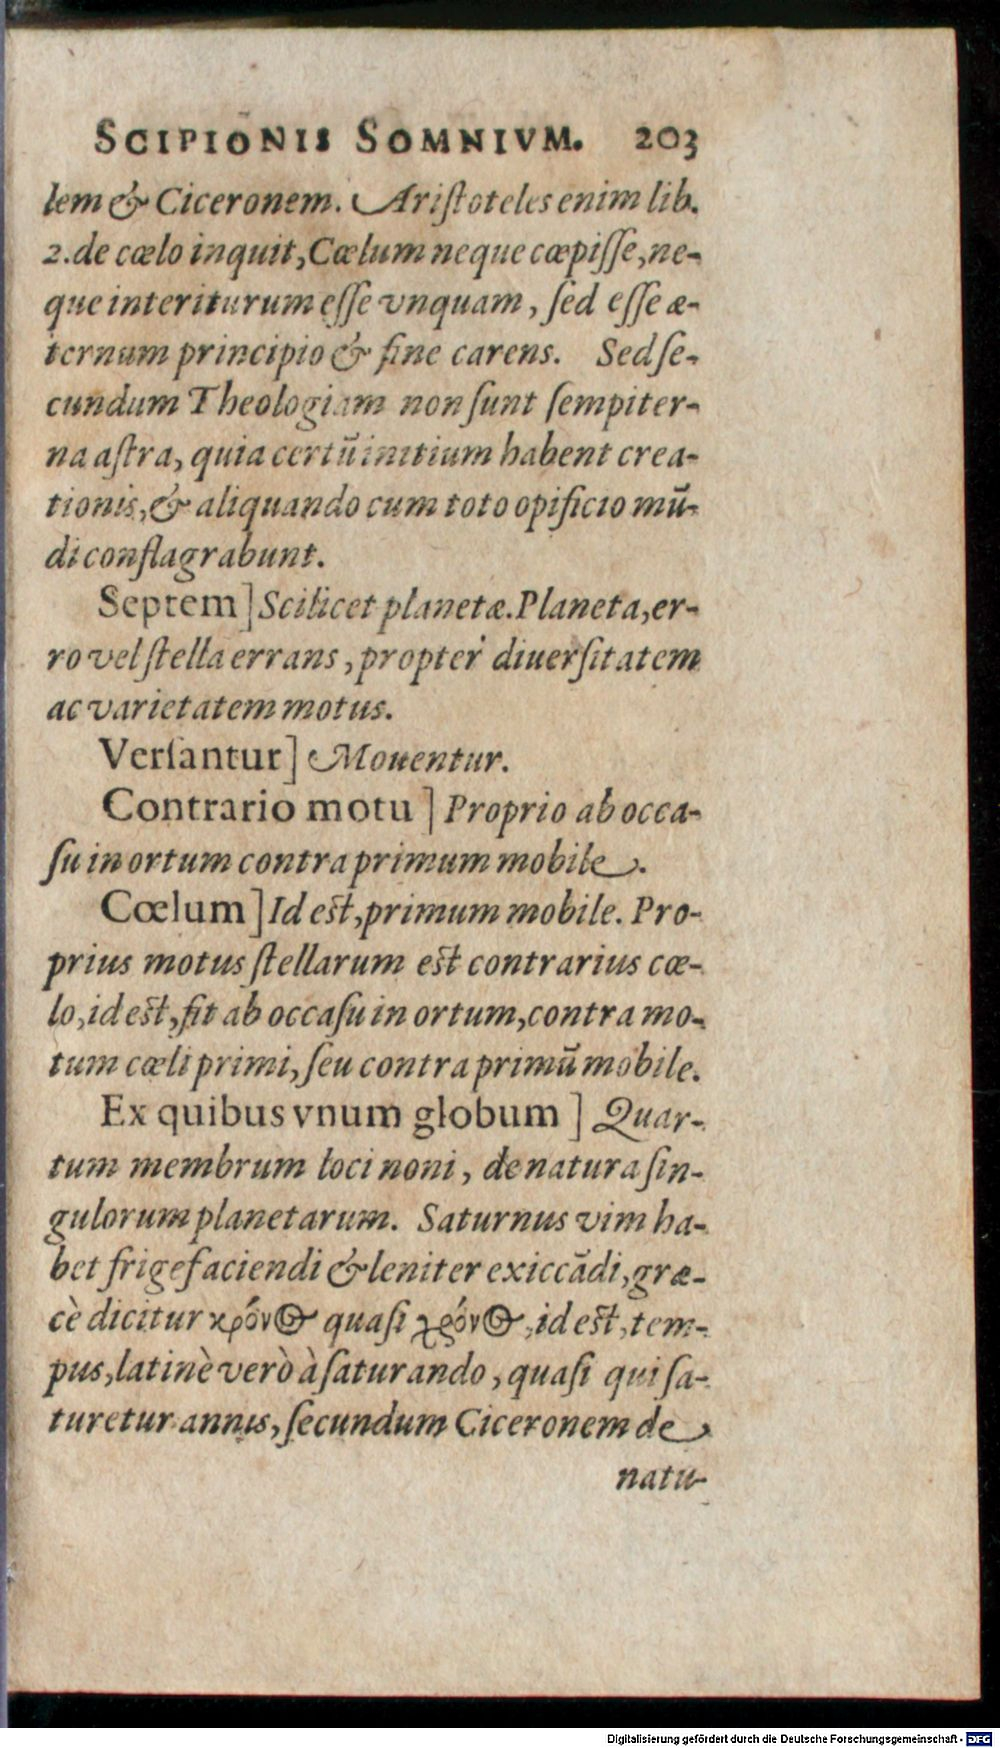 SCIPIONIS SOMNIVM. 203
lem & Ciceronem. Ariſtoteles enim lib.
2. de cœlo inquit, Cœlum neque cœpiſſe, ne-
que interiturum eſſe vnquam, ſed eſſe æ-
ternum principio & fine carens. Sed ſe-
cundum Theologiam non ſunt ſempiter-
na aſtra, quia certũ initium habent crea-
tionis, & aliquando cum toto opificio mũ-
di conflagrabunt.
Septem] Scilicet planetæ. Planeta, er-
ro vel ſtella errans, propter diuerſitatem
ac varietatem motus.
Verſantur] Mouentur.
Contrario motu] Proprio ab occa-
ſu in ortum contra primum mobile.
Cœlum] Id eſt, primum mobile. Pro-
prius motus ſtellarum eſt contrarius cœ-
lo, id eſt, fit ab occaſu in ortum, contra mo-
tum cœli primi, ſeu contra primũ mobile.
Ex quibus vnum globum] Quar-
tum membrum loci noni, de natura ſin-
gulorum planetarum. Saturnus vim ha-
bet frigefaciendi & leniter exiccãdi, græ-
cè dicitur κρόνος quaſi χρόνος, id eſt, tem-
pus, latinè verò à ſaturando, quaſi qui ſa-
turetur annis, ſecundum Ciceronem de
natu-
Digitalisierung gefördert durch die Deutsche Forschungsgemeinschaft - DFG